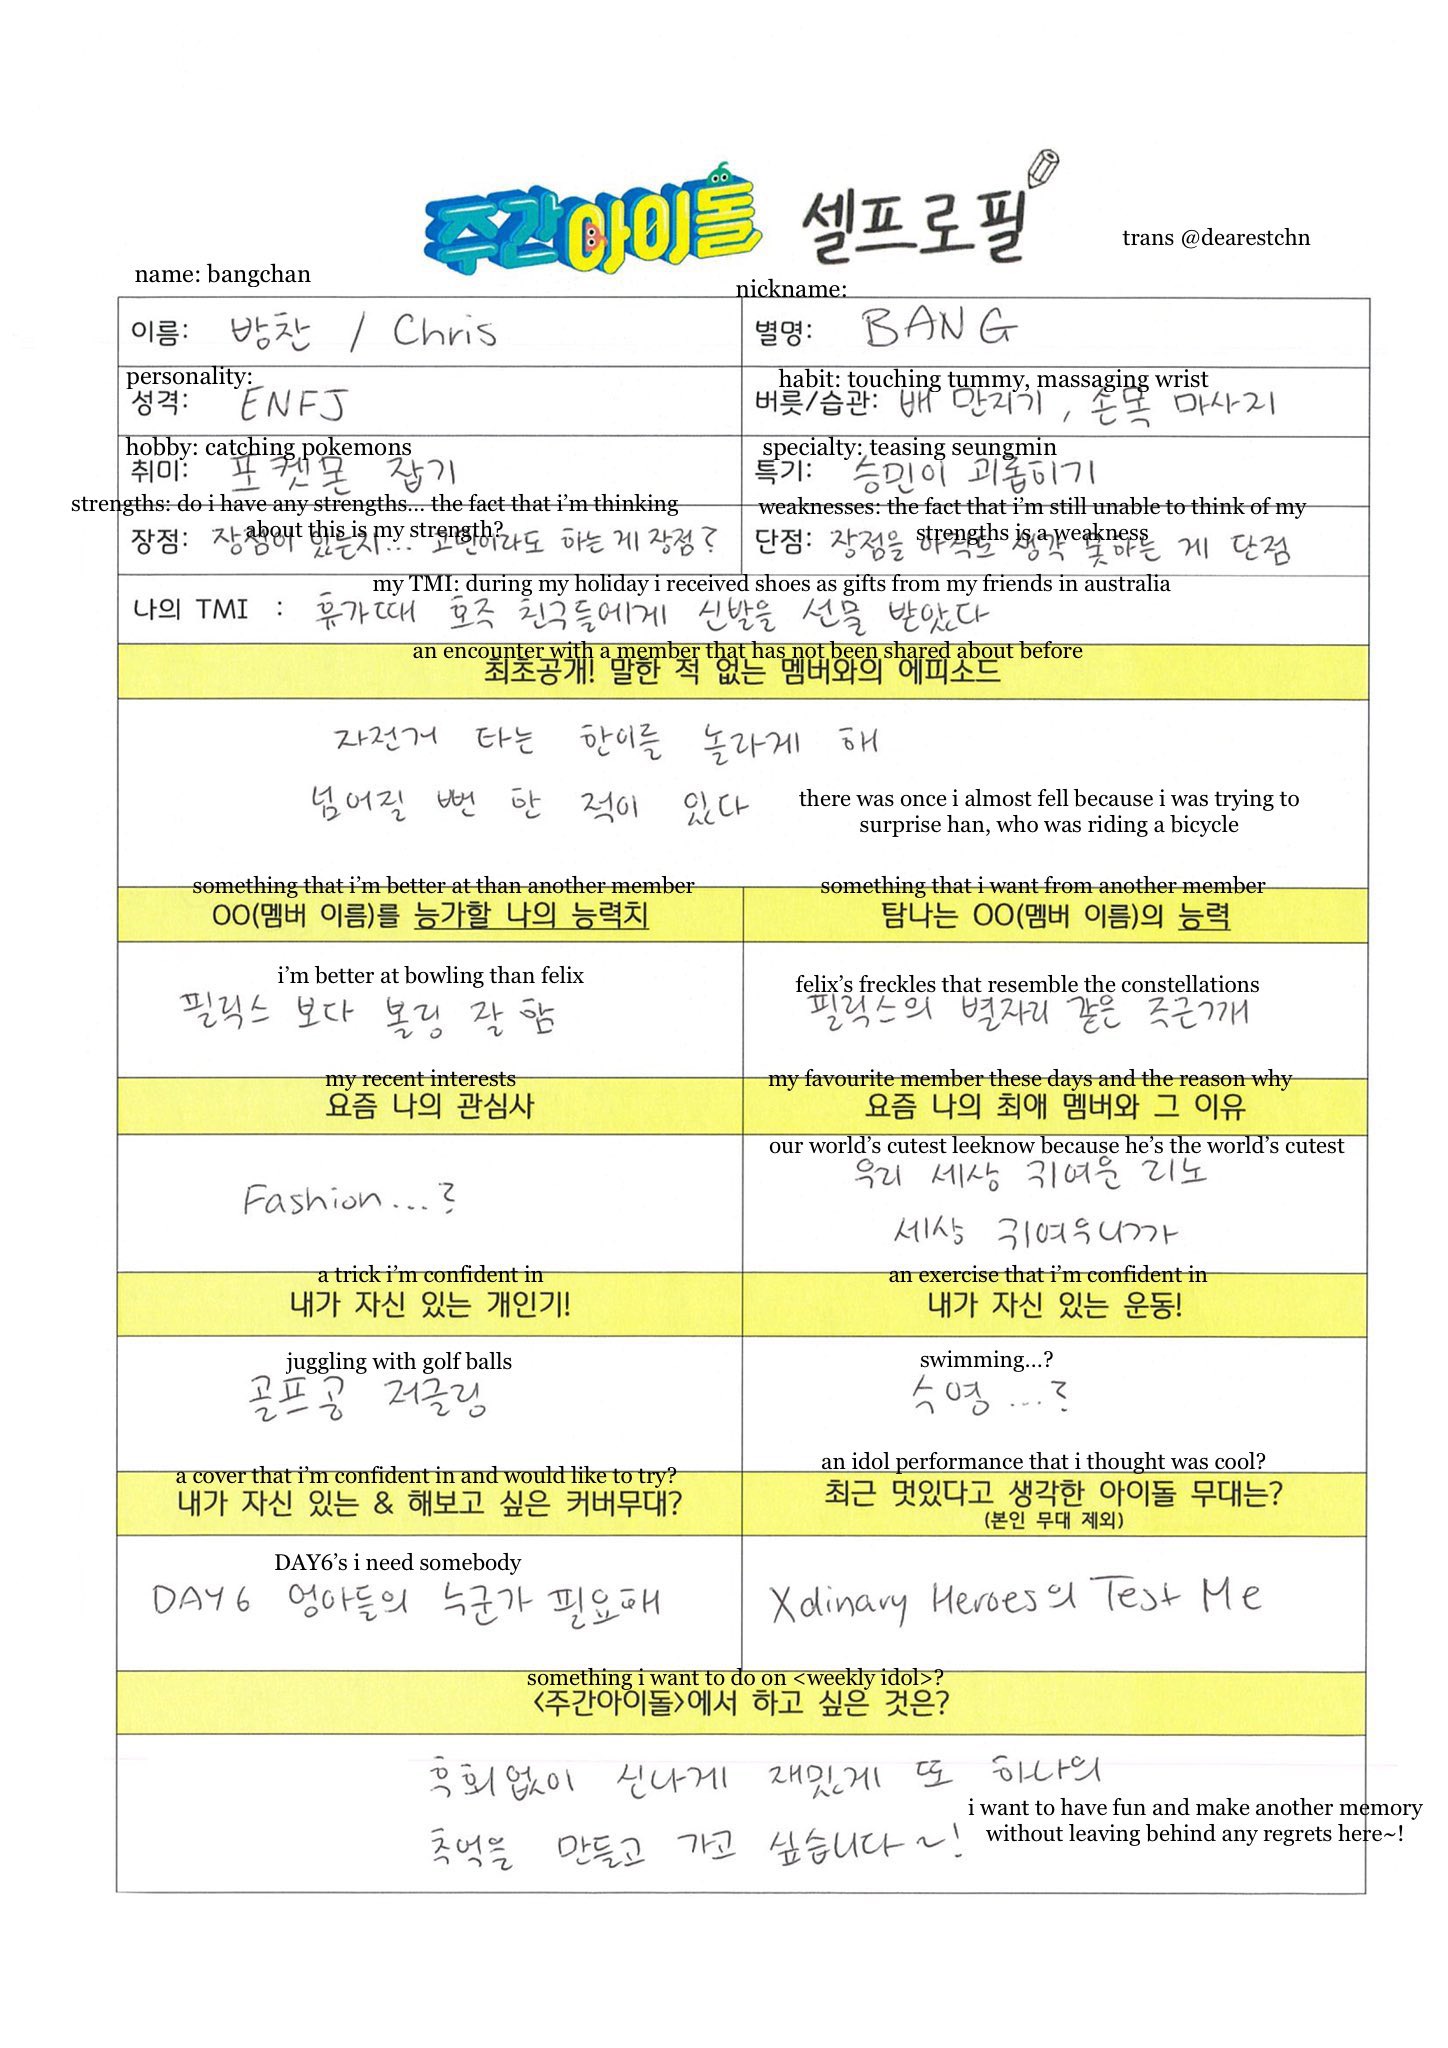 주간아이돌 셀프로필
trans @dearestchn
name: bangchan
nickname:
이름: 방찬 / Chris
별명: BANG
personality:
성격: ENFJ
habit: touching tummy, massaging wrist
버릇/습관: 배 만지기, 손목 마사지
hobby: catching pokemons
취미: 포켓몬 잡기
specialty: teasing seungmin
특기: 승민이 괴롭히기
strengths: do i have any strengths... the fact that i'm thinking
about this is my strength?
장점: 장점이 있는지... 고민이라도 하는 게 장점?
weaknesses: the fact that i'm still unable to think of my
strengths is a weakness
단점: 장점을 아직도 생각 못하는 게 단점
my TMI: during my holiday i received shoes as gifts from my friends in australia
나의 TMI : 휴가때 호주 친구들에게 신발을 선물 받았다
an encounter with a member that has not been shared about before
최초공개! 말한 적 없는 멤버와의 에피소드
자전거 타는 한이를 놀라게 해
넘어질 뻔 한 적이 있다
there was once i almost fell because i was trying to
surprise han, who was riding a bicycle
something that i'm better at than another member
OO(멤버 이름)를 능가할 나의 능력치
something that i want from another member
탐나는 OO(멤버 이름)의 능력
i'm better at bowling than felix
필릭스 보다 볼링 잘 함
felix's freckles that resemble the constellations
필릭스의 별자리 같은 주근깨
my recent interests
요즘 나의 관심사
my favourite member these days and the reason why
요즘 나의 최애 멤버와 그 이유
Fashion...?
our world's cutest leeknow because he's the world's cutest
우리 세상 귀여운 리노
세상 귀여우니까
a trick i'm confident in
내가 자신 있는 개인기!
an exercise that i'm confident in
내가 자신 있는 운동!
juggling with golf balls
골프공 저글링
swimming...?
수영...?
a cover that i'm confident in and would like to try?
내가 자신 있는 & 해보고 싶은 커버무대?
an idol performance that i thought was cool?
최근 멋있다고 생각한 아이돌 무대는?
(본인 무대 제외)
DAY6's i need somebody
DAY6 형아들의 누군가 필요해
Xdinary Heroes의 Test Me
something i want to do on <weekly idol>?
<주간아이돌>에서 하고 싶은 것은?
후회없이 신나게 재밌게 또 하나의
추억을 만들고 가고 싶습니다~!
i want to have fun and make another memory
without leaving behind any regrets here~!